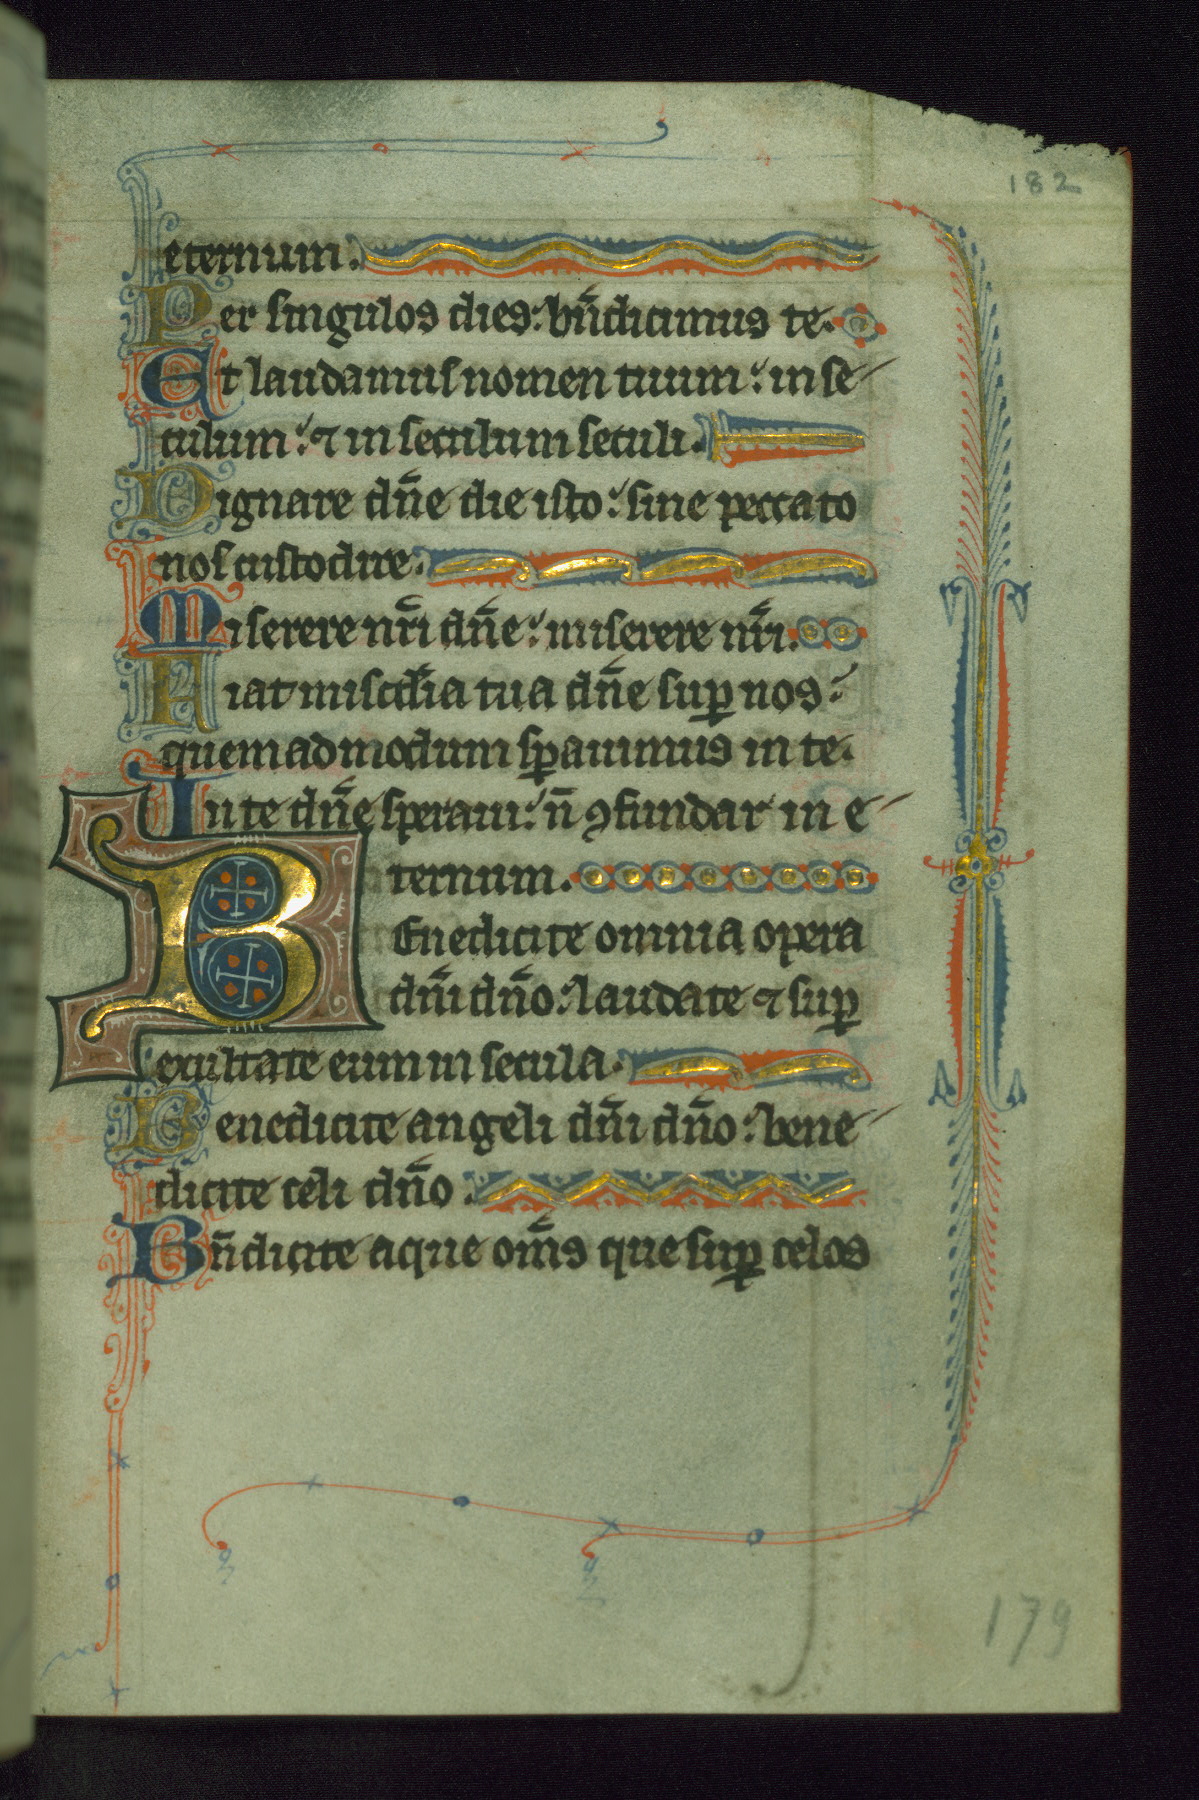 182
eternum.
Per singulos dies: bn̄dicimus te.
Et laudamus nomen tuum: in se
culum: ⁊ in seculum seculi.
Dignare dn̄e die isto: sine peccato
nos custodire.
Miserere nr̄i dn̄e: miserere nr̄i.
Fiat misc̄dia tua dn̄e suꝑ nos:
quemadmodum sꝑauimus in te.
In te dn̄e speraui: n̄ ꝯfundar in e
ternum.
Benedicite omnia opera
dn̄i dn̄o: laudate ⁊ suꝑ
exultate eum in secula.
Benedicite angeli dn̄i dn̄o: bene
dicite celi dn̄o:
Bn̄dicite aque om̄s que suꝑ celos
179